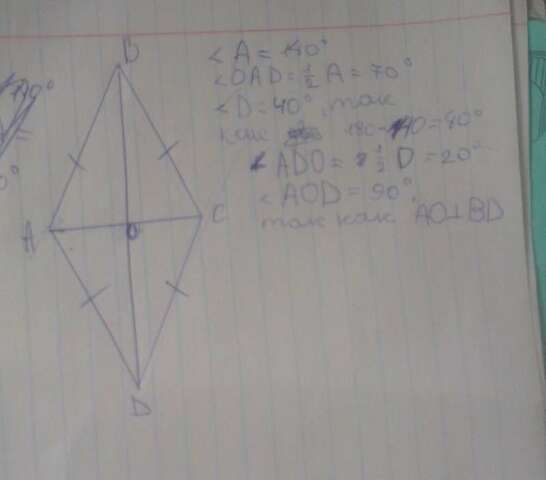 B
∠A = 140°
∠OAD = ½ A = 70°
∠D = 40°, так
как 180-140=40°
∠ADO = ½ D = 20°
∠AOD = 90°,
так как AO⊥BD
A
O
C
D